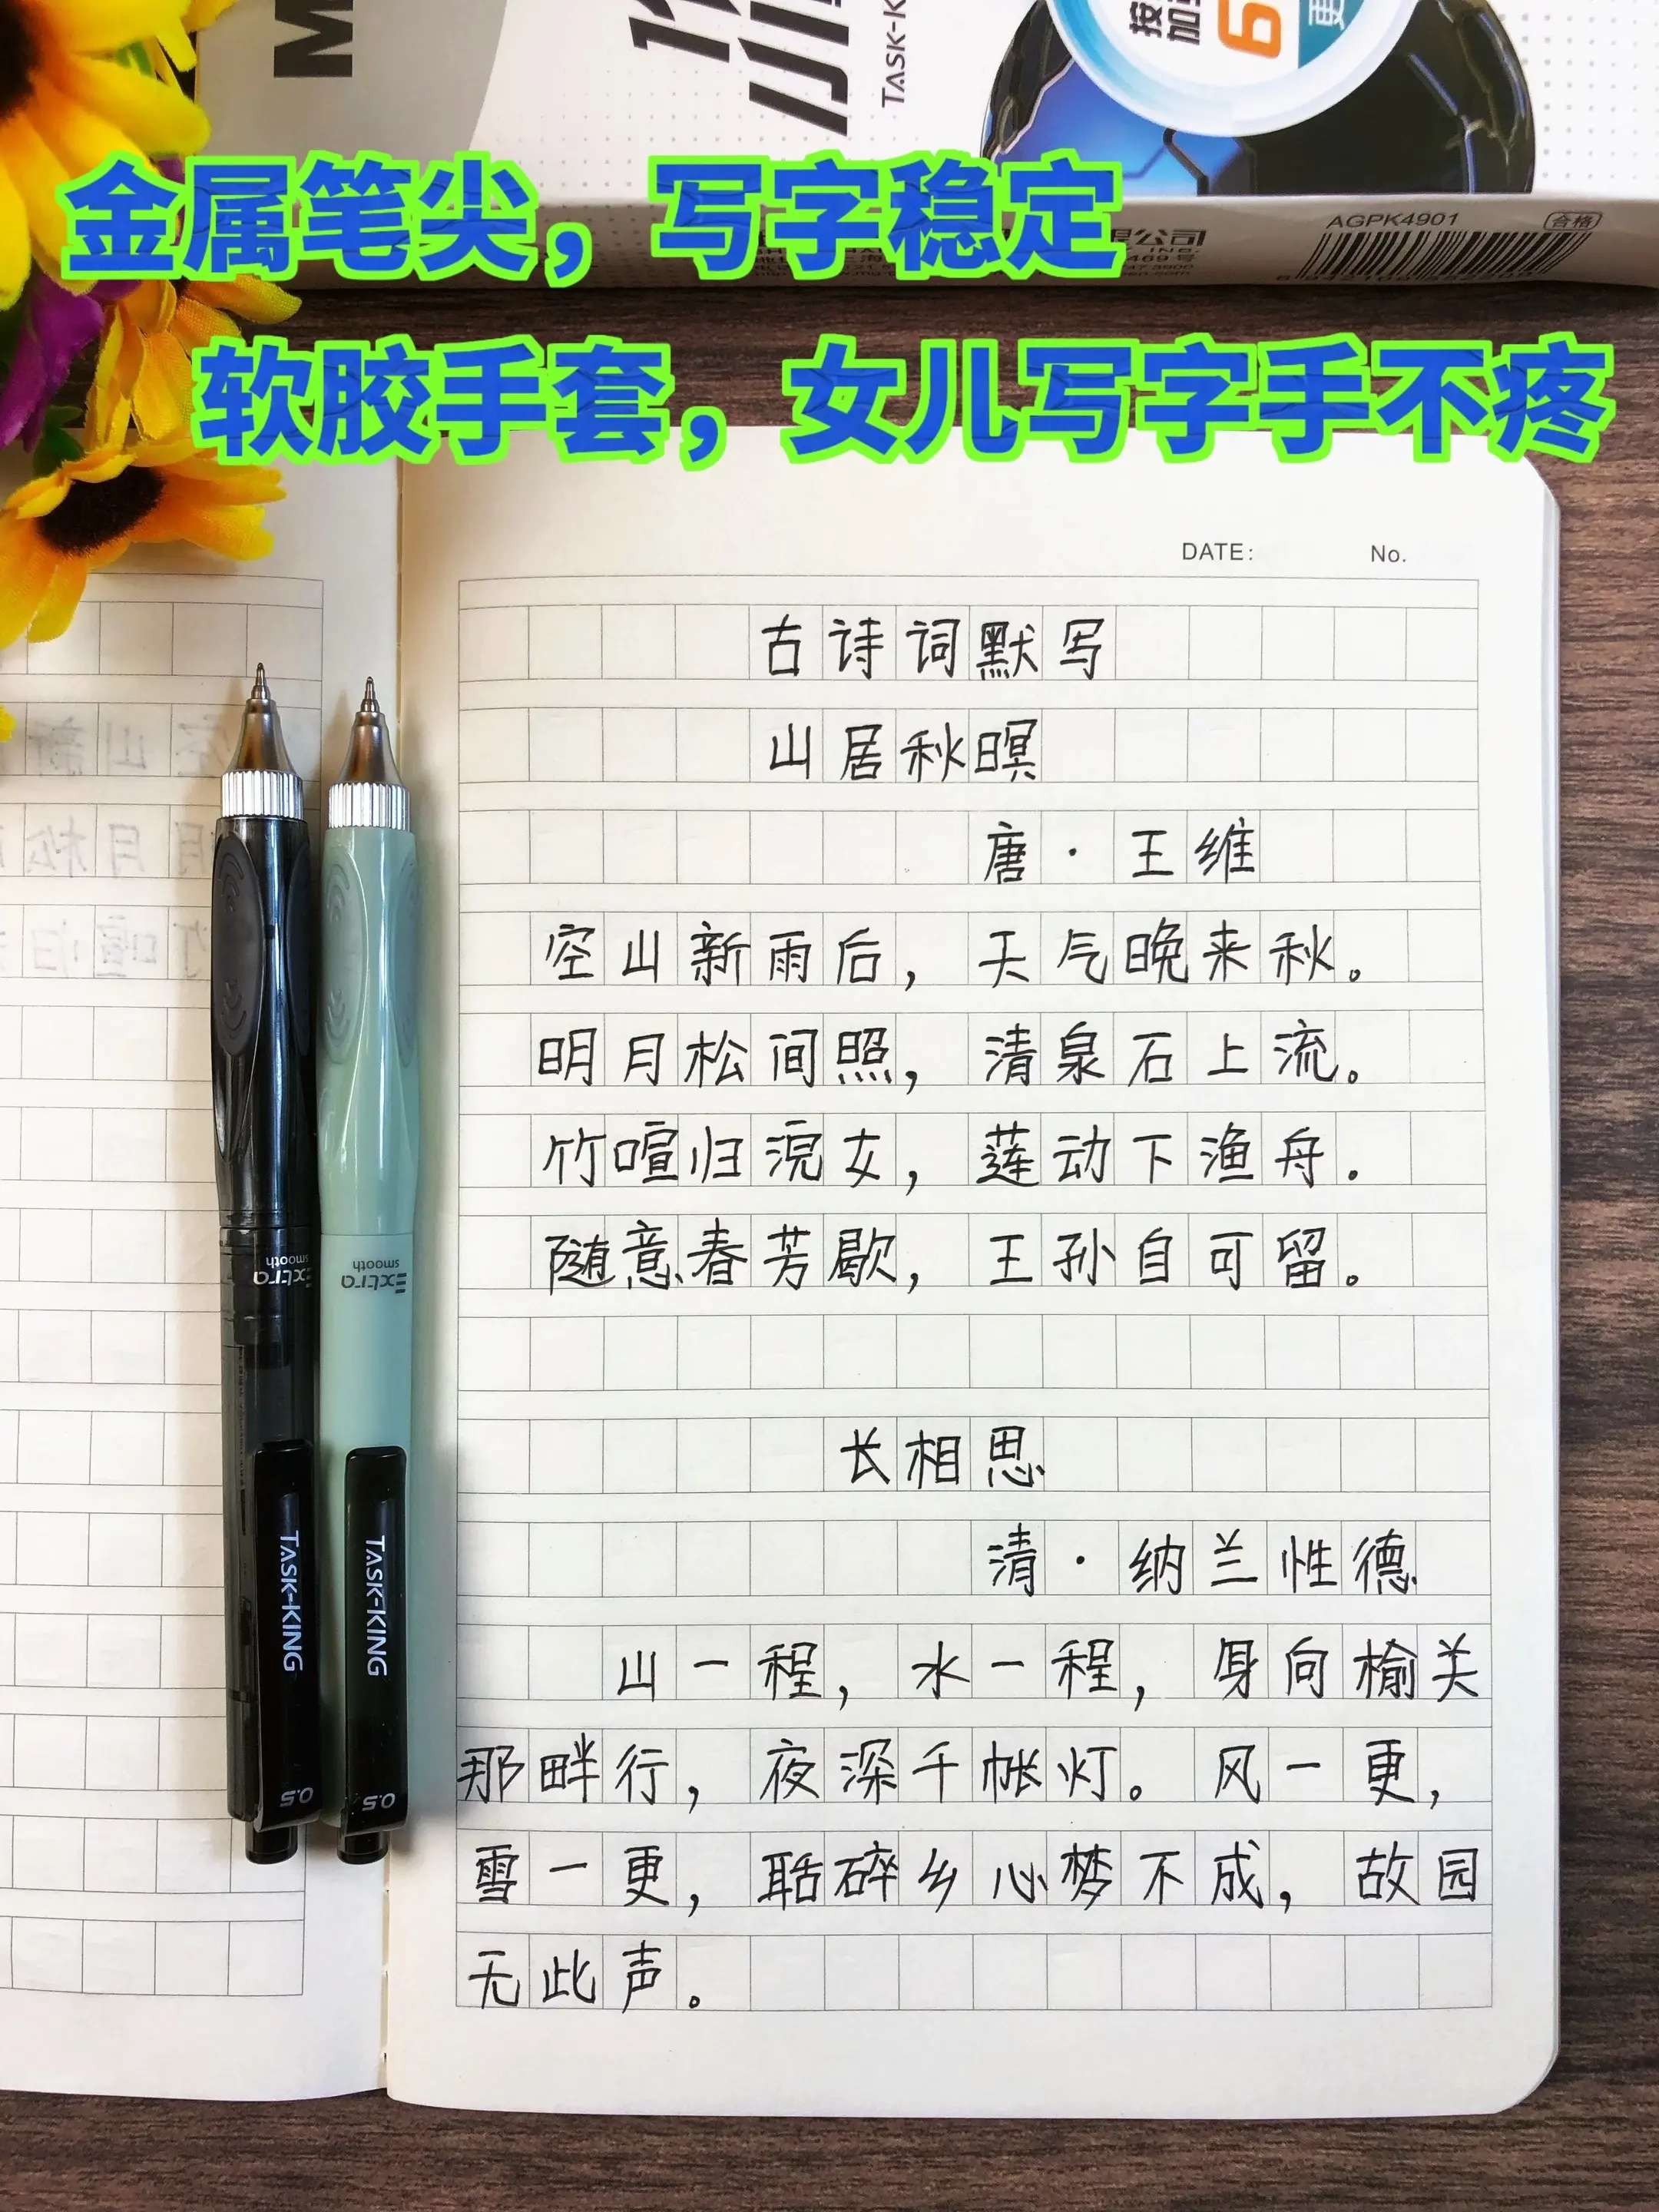 TASK-K
按
6
更
金属笔尖，写字稳定
AGPK4901
合格
公司
软胶手套，女儿写字手不疼
DATE:
No.
古诗词默写
山居秋暝
唐·王维
空山新雨后，天气晚来秋。
明月松间照，清泉石上流。
竹喧归浣女，莲动下渔舟。
随意春芳歇，王孙自可留。
长相思
清·纳兰性德
山一程，水一程，身向榆关
那畔行，夜深千帐灯。风一更，
雪一更，聒碎乡心梦不成，故园
无此声。
Extra
smooth
Extra
smooth
TASK-KING
TASK-KING
0.5
0.5